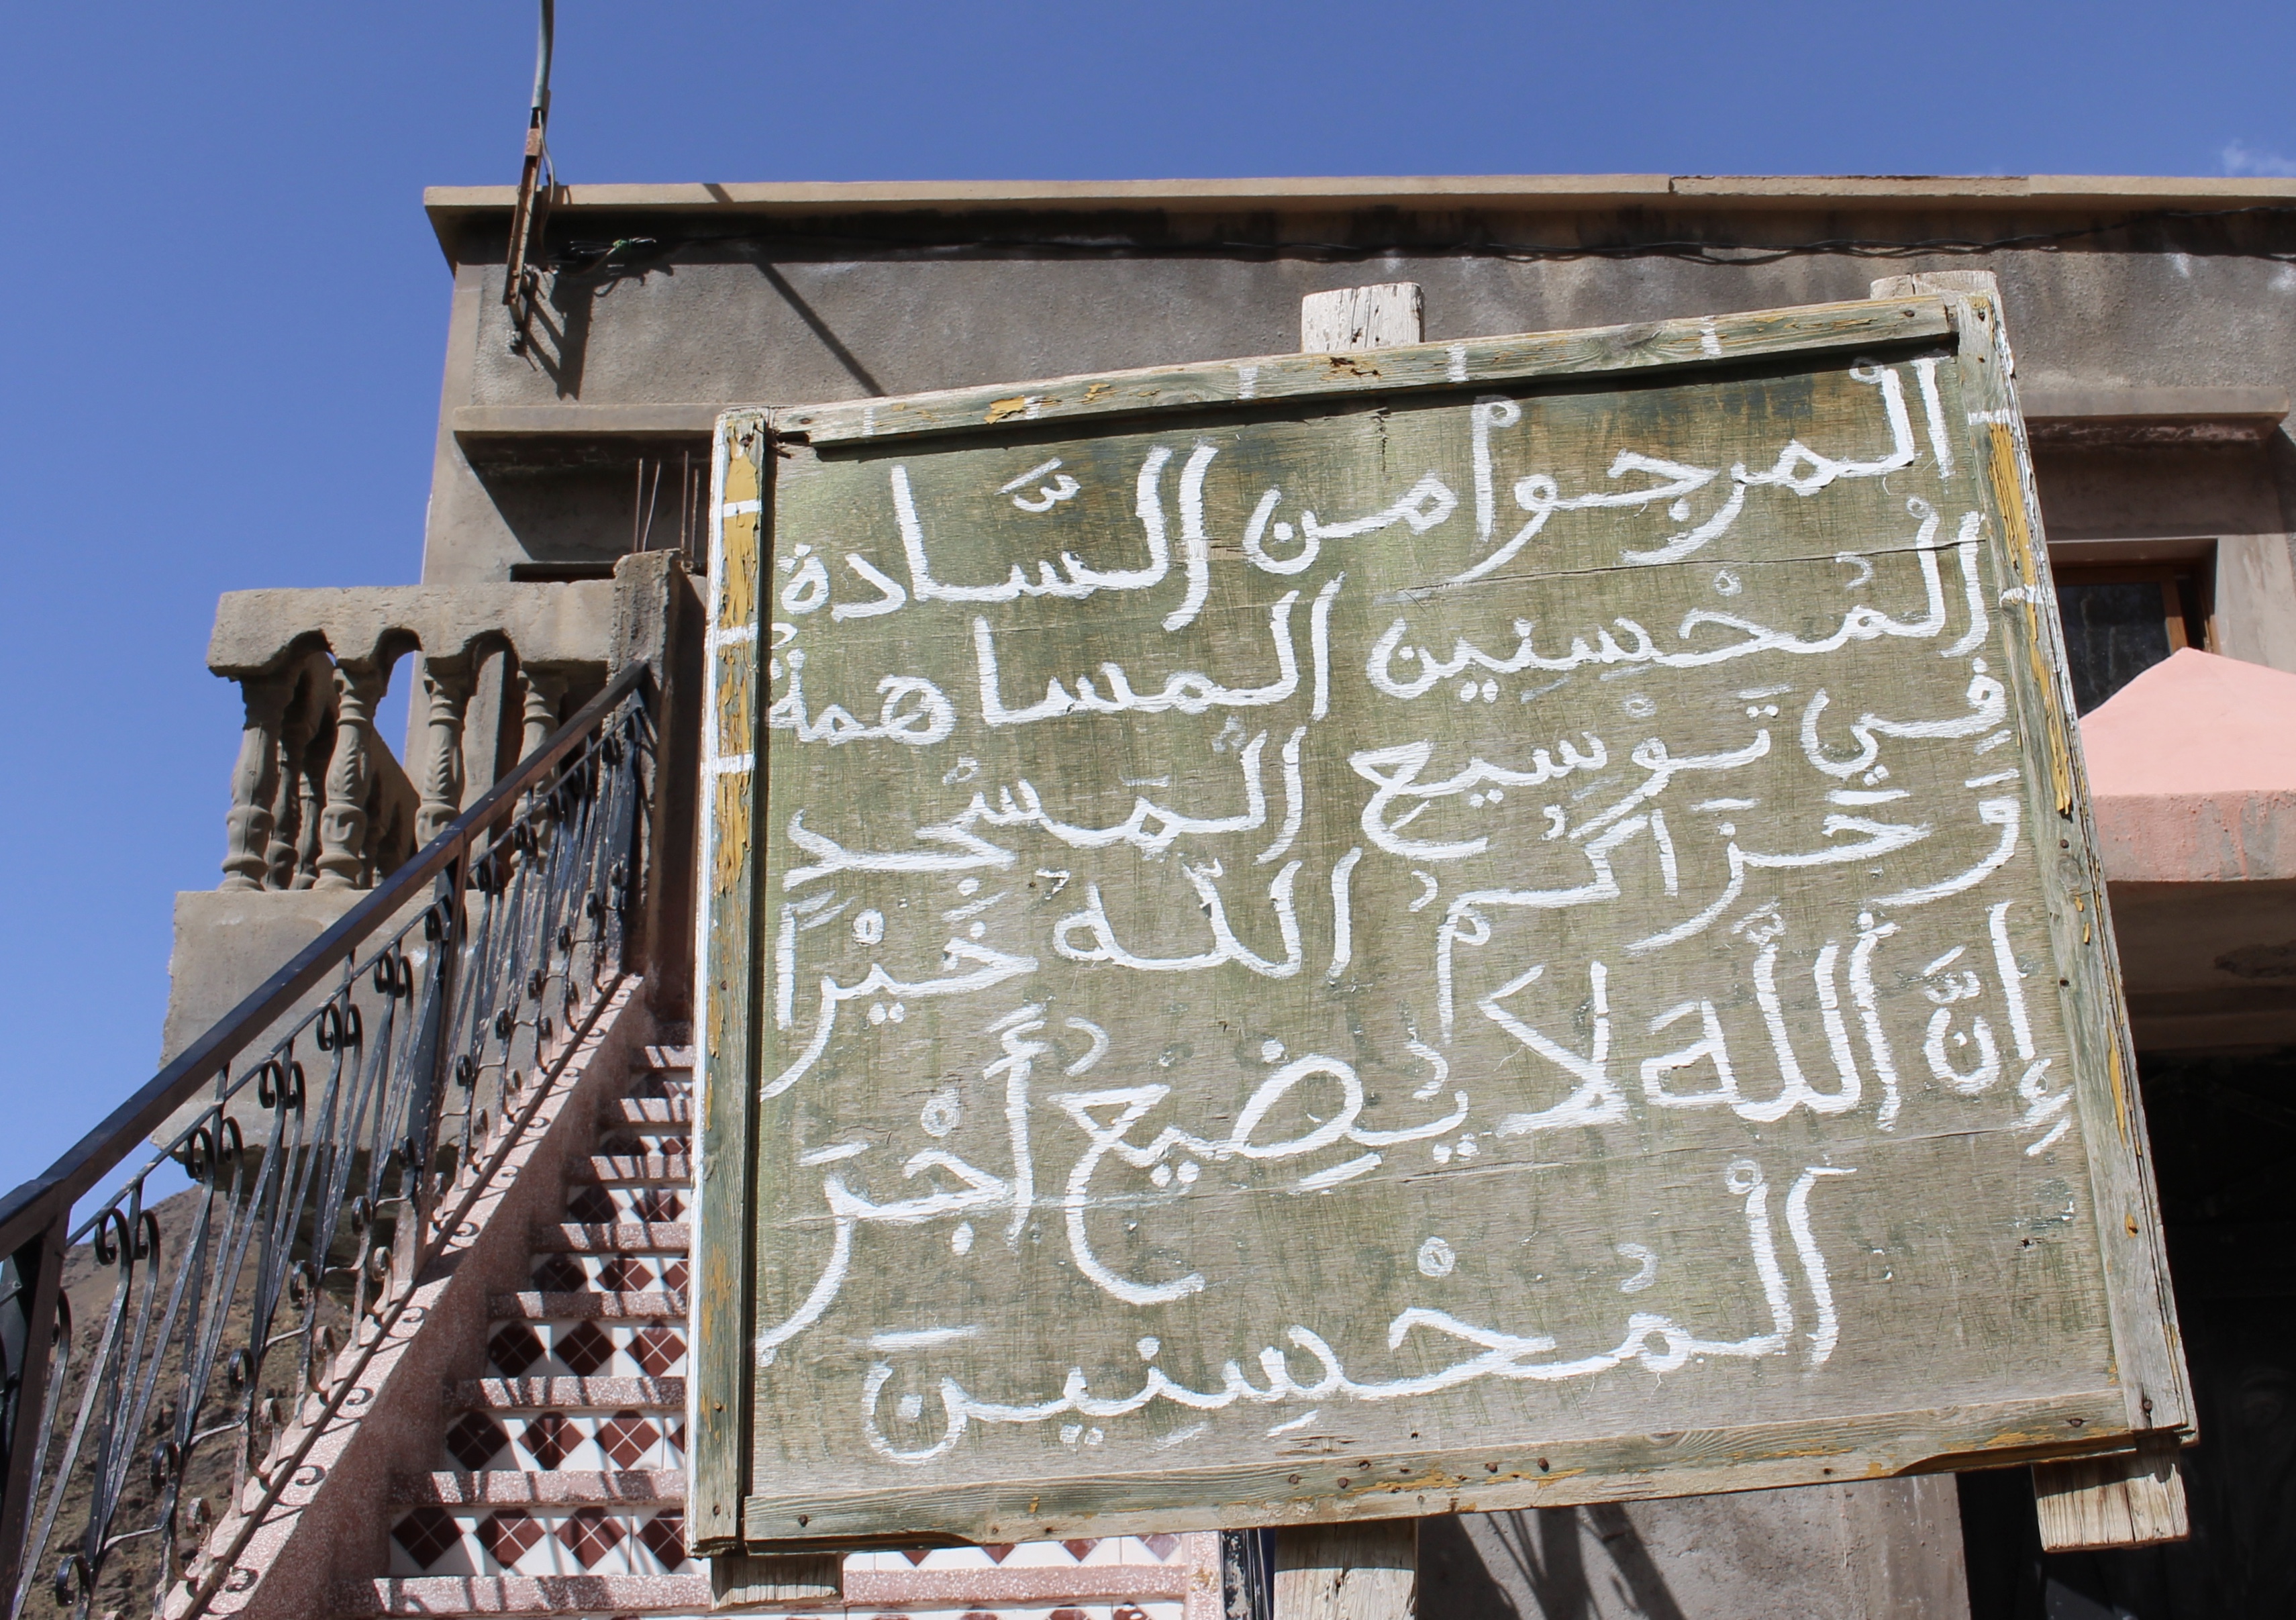 الْمرجوا من السَّادة
الْمُحْسنِين المساهمةُ
فِي توْسيع المَسْجِدِ
وَجَزَاكُمُ اللَّهُ خَيْرًا
إنَّ اللَّه لَا يُضِيعُ أَجْرَ
الْمُحْسِنِينَ